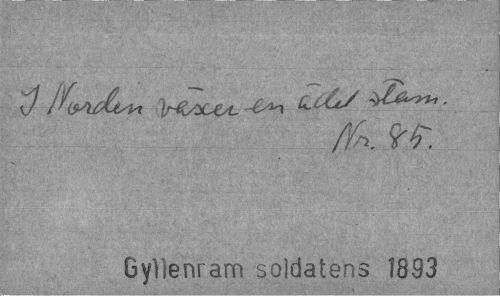 I Norden växer en ädel stam.
Nr. 85.
Gyllenram soldatens 1893